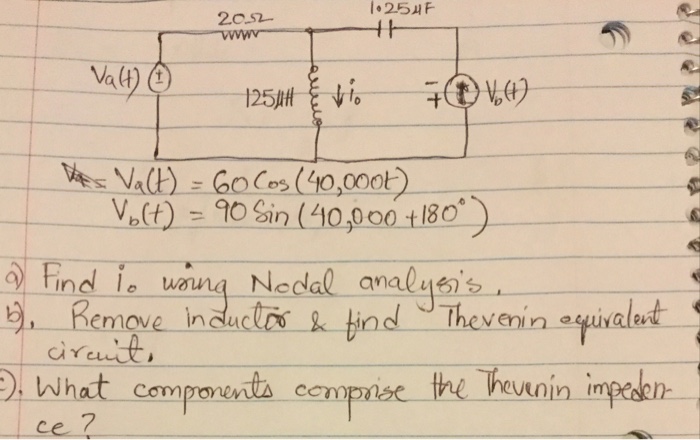 20Ω
1.25μF
Va(t)
125μH
↓ i₀
Vb(t)
Va(t) = 60 Cos (40,000t)
Vb(t) = 90 Sin (40,000 + 180°)
a) Find i₀ using Nodal analysis.
b). Remove inductor & find Thevenin equivalent
circuit.
c). What components comprise the Thevenin impeden-
ce?